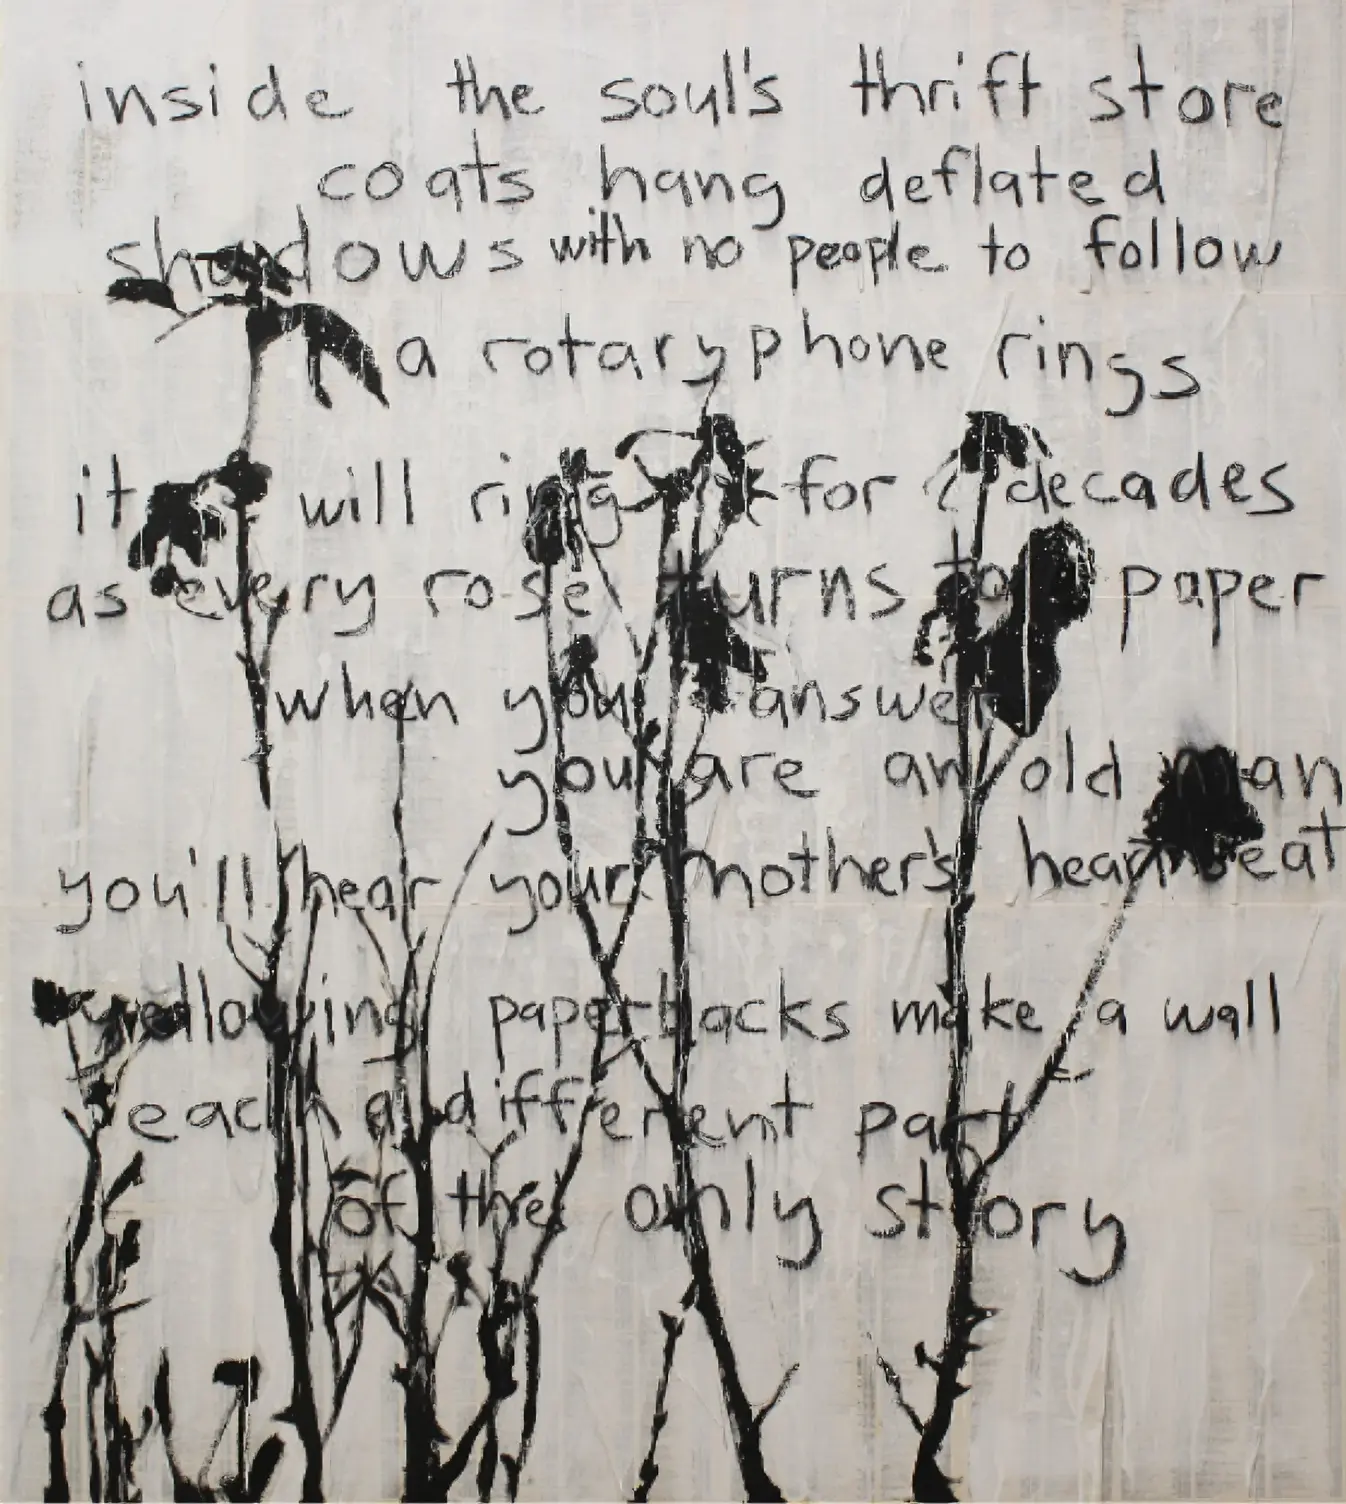 inside the soul's thrift store
coats hang deflated
shadows with no people to follow
a rotary phone rings
it will ring for decades
as every rose turns to paper
when you answer
you are an old man
you'll hear your mother's heartbeat
yellowing paperbacks make a wall
each a different part
of the only story